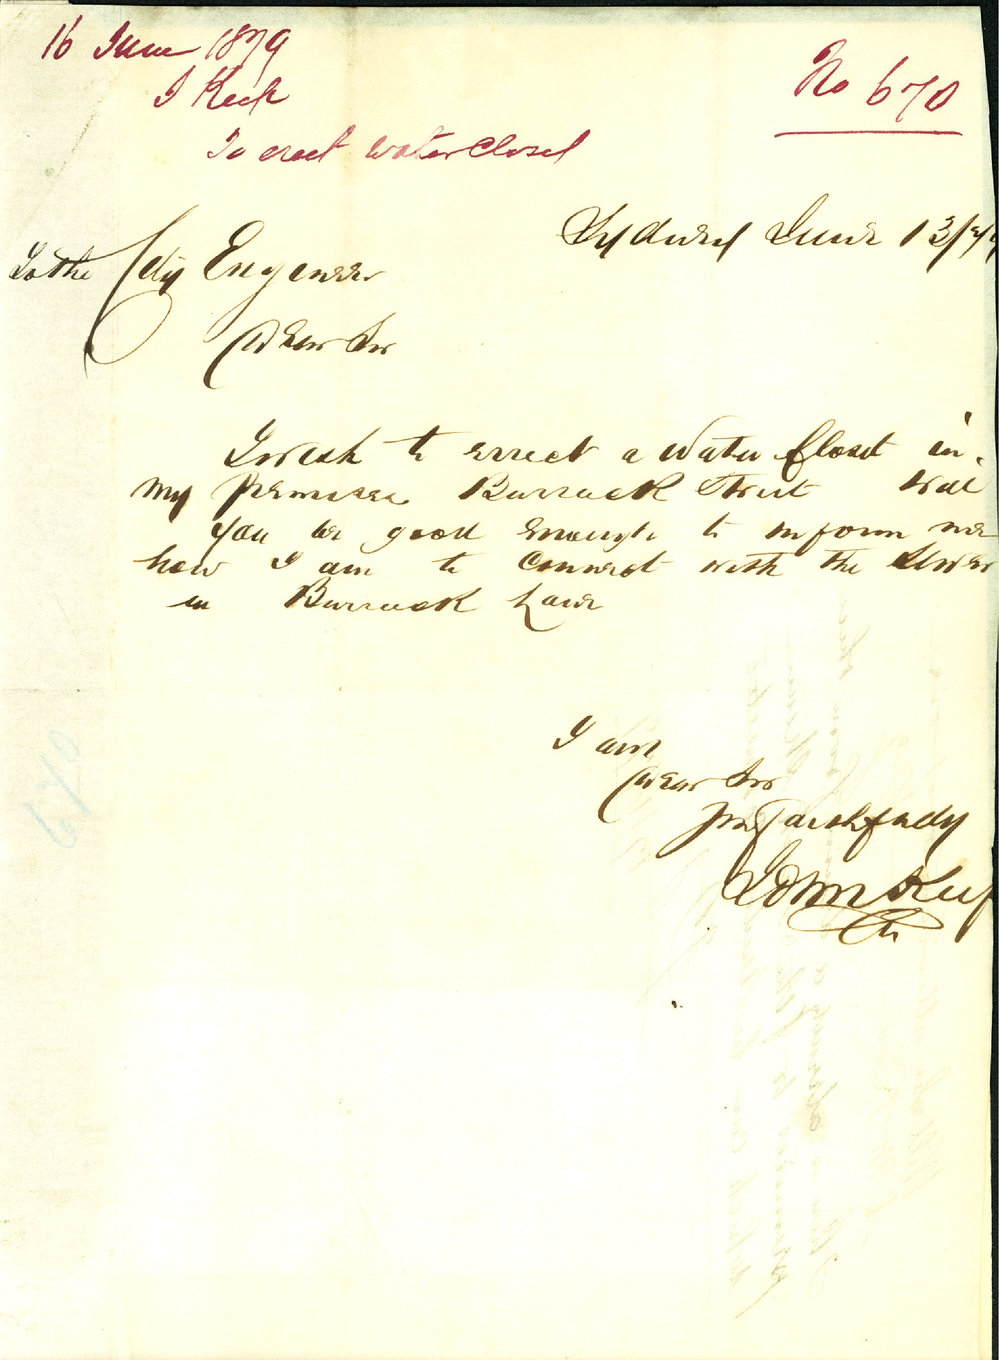 16 June 1879
J Keep
To erect water closet
No 670
Sydney June 13/79
To the City Engineer
Dear Sir
I wish to errect a Water Closet in
my premises Barrack Street Will
you be good enough to inform me
how I am to connect with the Sewer
in Barrack Lane
I am
Dear Sir
Yrs Faithfully
John Keep
670